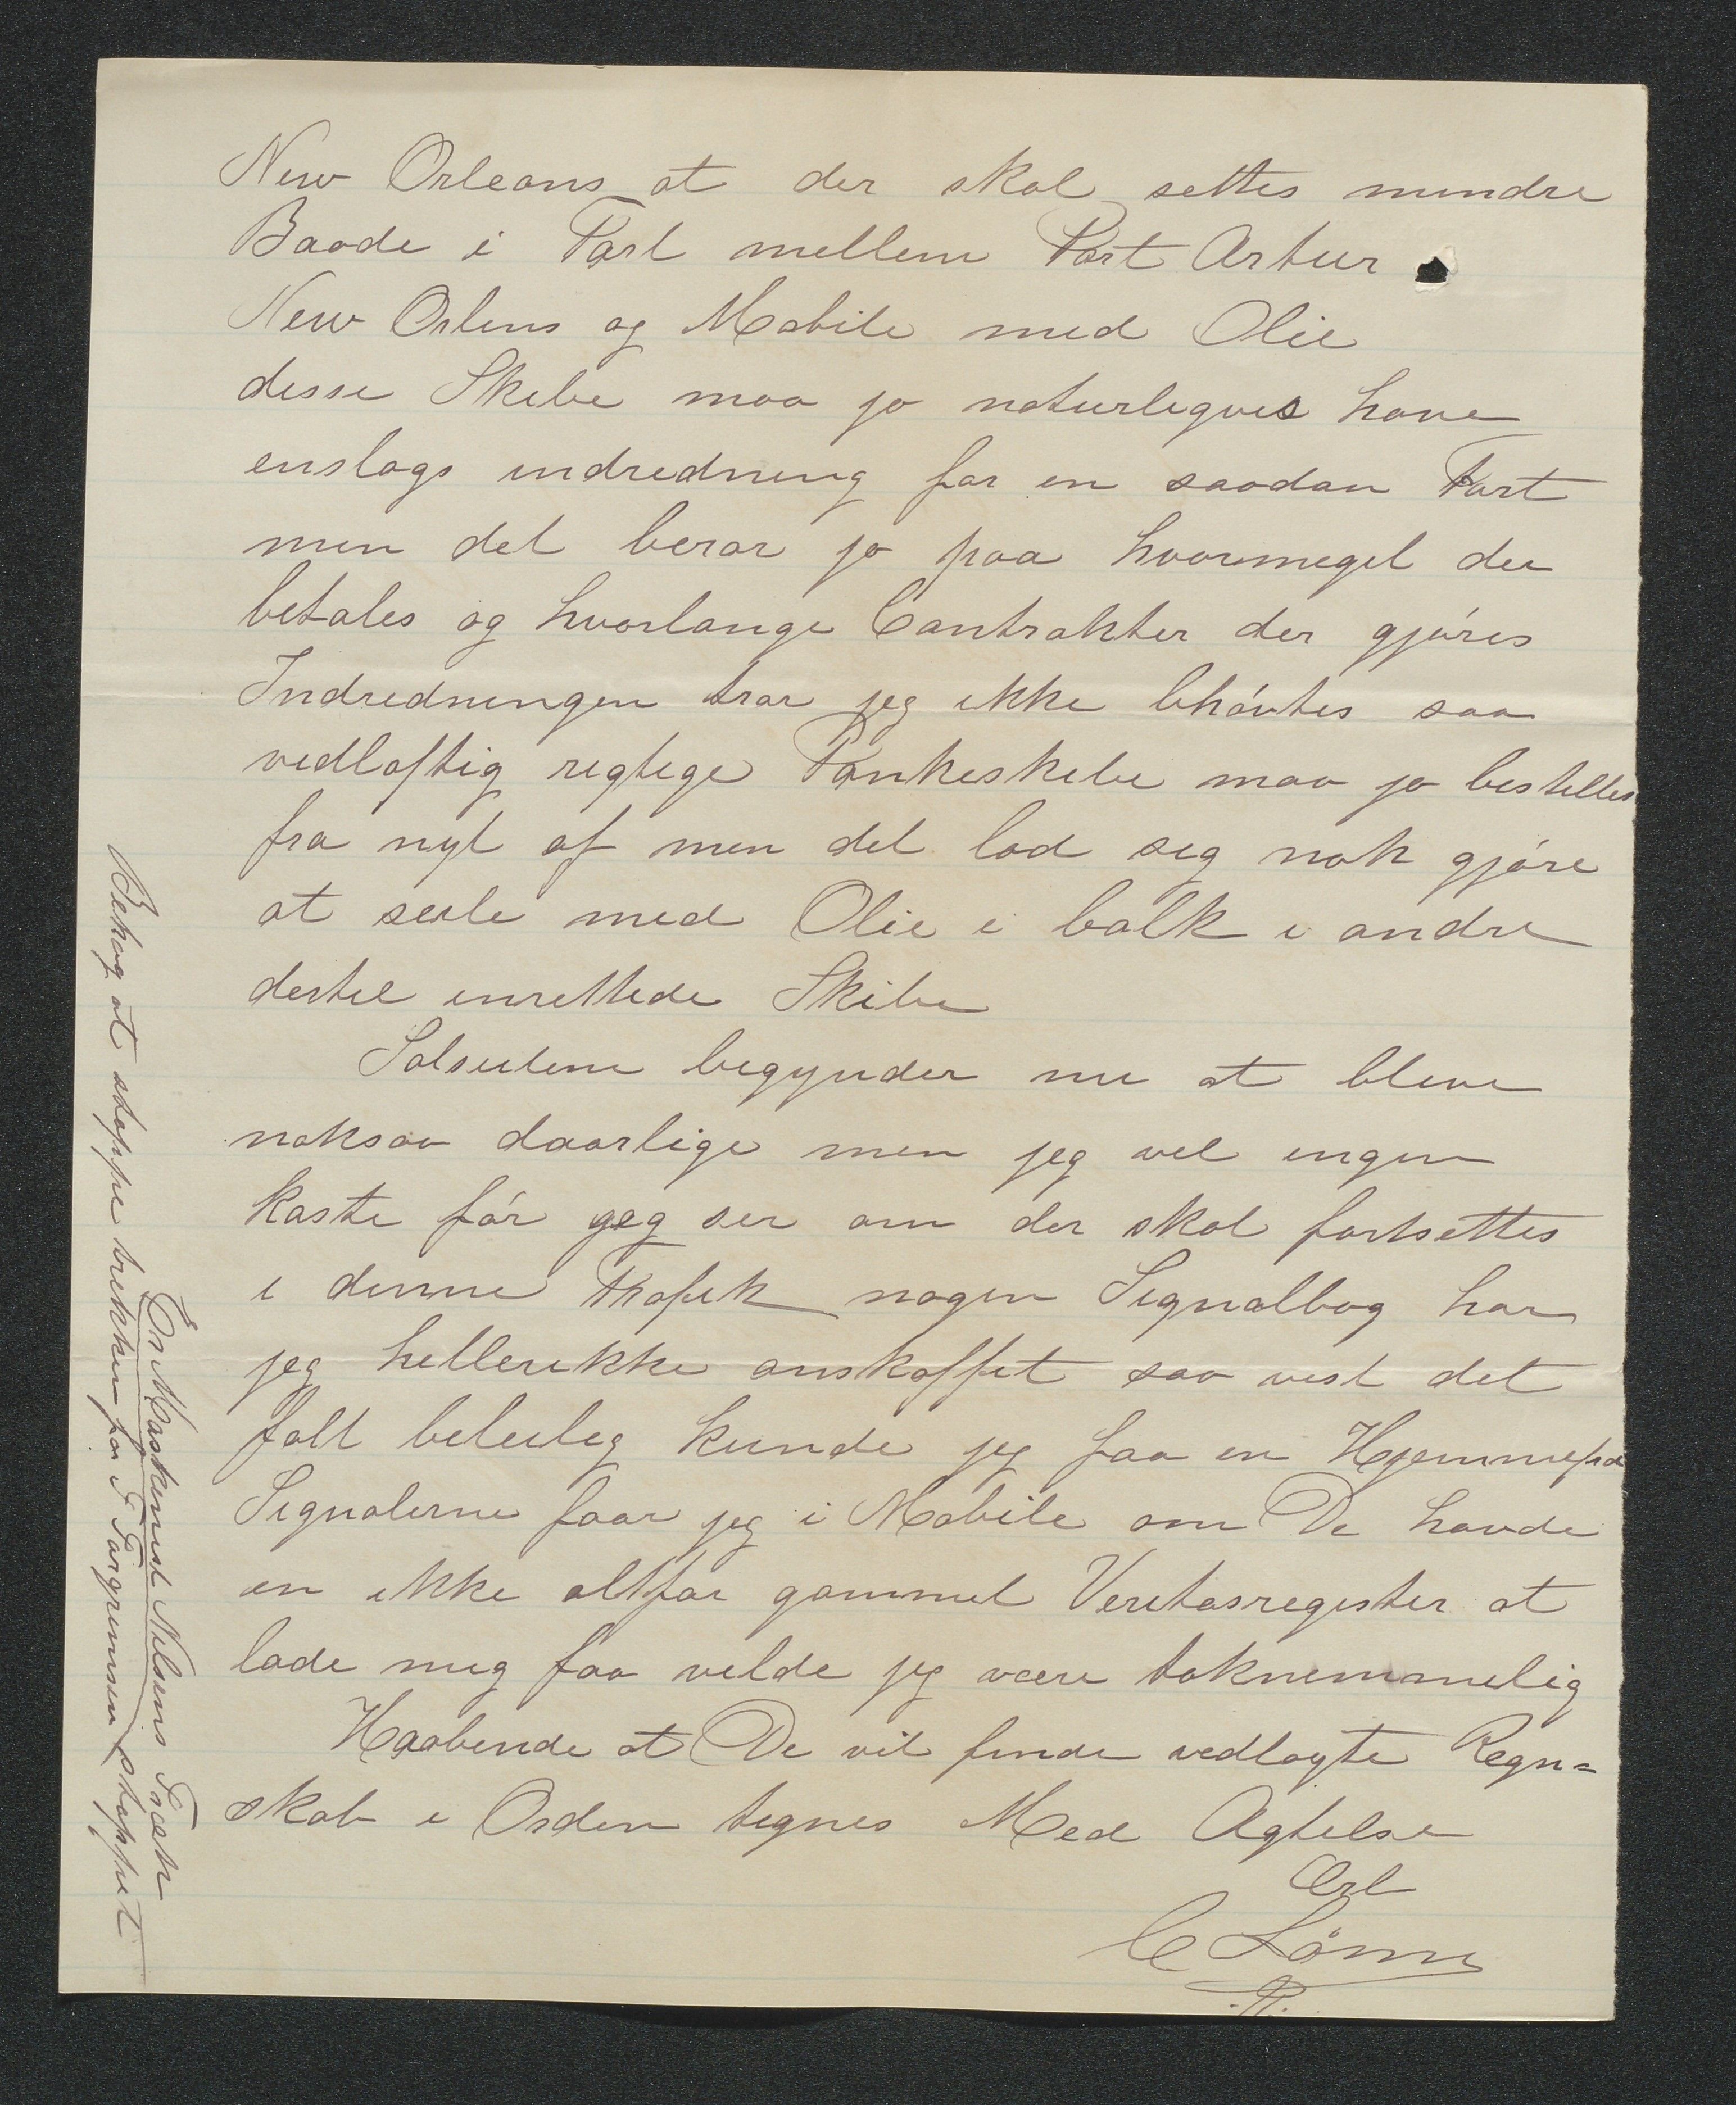 New Orleans at der skal settes mindre
Baade i Fart mellem Port Artur
New Orlens og Mobile med Olie
disse Skibe maa jo naturligvis have
enslags indredning for en saadan Fart
men det beror jo paa hvormeget der
betales og hvorlange Contrakter der gjøres
Indredningen tror jeg ikke bhøvtes saa
vidløftig regtige Tankeskibe maa jo bestilles
fra nyt af men det lod sig nok gjøre
at seile med Olie i bolk i andre
dertil inrettede Skibe
Solseilene begynder nu at blive
noksaa daarlige men jeg vil ingen
kaste før jeg ser om der skal fortsettes
i denne Trafik nogen Signalbog har
jeg hellerikke anskaffet saa vist det
falt beleilig kunde jeg faa en Hjemmefra
Signalerne faar jeg i Mobile om De havde
en ikke altfor gammel Veritasregister at
lade mig faa vilde jeg være taknemmelig
Haabende at De vil finde vedlagte Regn=
skab i Orden tegnes Med Agtelse
Erb
C Lönne
Er Maskinist Nilsens Træk
Behag at stoppe trekken for F Torgrimsen stoppet